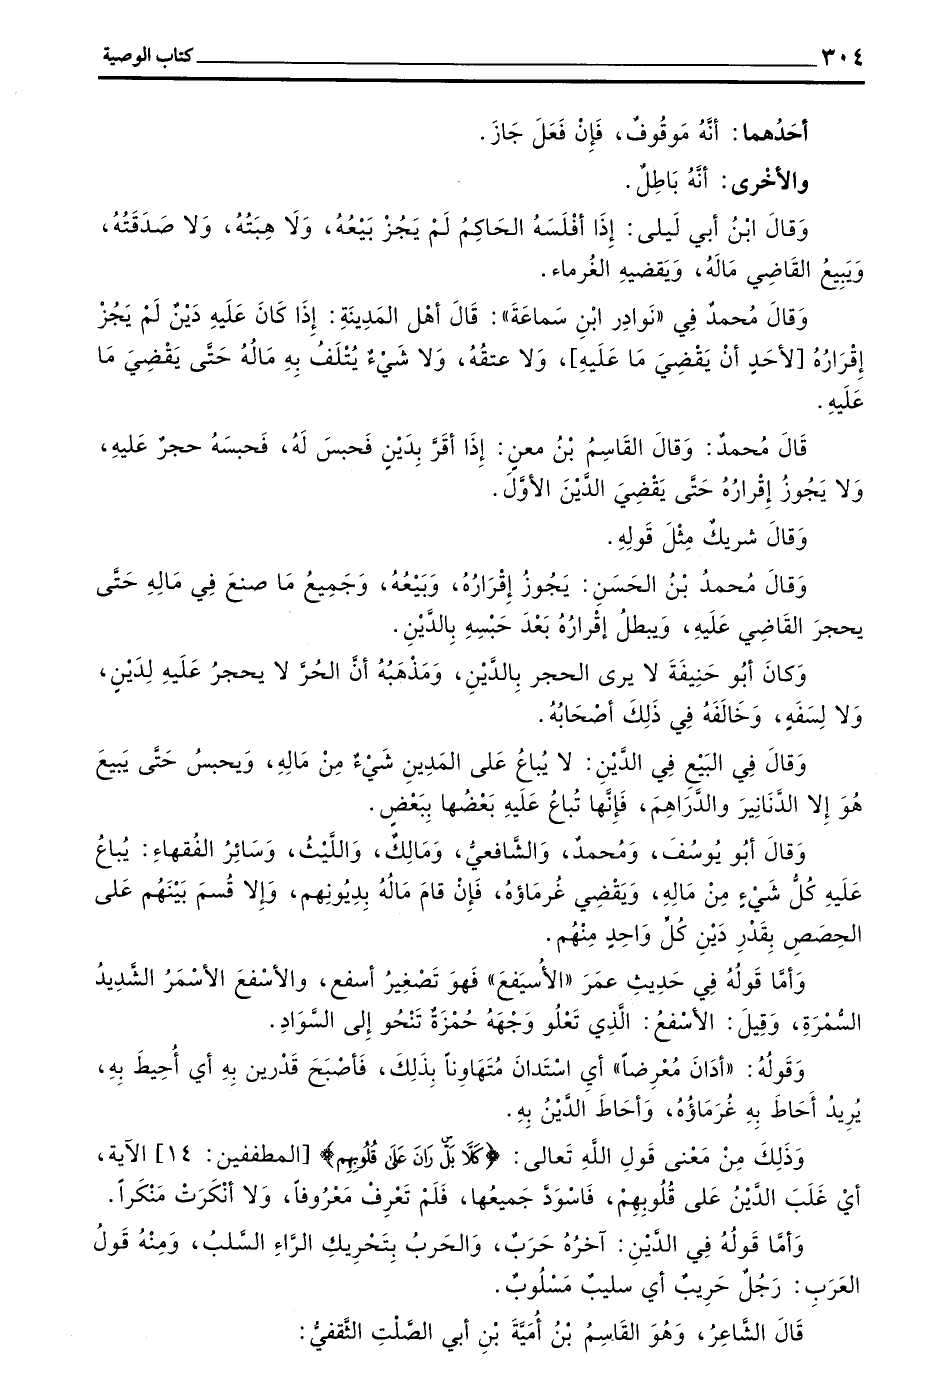 ٣٠٤ كتاب الوصية
أحَدُهما: أنَّهُ مَوقُوفٌ، فَإنْ فَعَلَ جَازَ.
والأخْرى: أنَّهُ بَاطِلٌ.
وَقالَ ابْنُ أبي لَيلى: إذَا أفْلَسَهُ الحَاكِمُ لَمْ يَجُزْ بَيْعُهُ، وَلَا هِبَتُهُ، وَلا صَدَقَتُهُ،
وَيَبِيعُ القَاضِي مَالَهُ، وَيَقضيهِ الغُرماء.
وَقالَ مُحمدٌ فِي «نَوادِر ابْنِ سَماعَةَ»: قَالَ أهْل المَدِينَةِ: إذَا كَانَ عَلَيهِ دَيْنٌ لَمْ يَجُزْ
إقْرَارُهُ [لأحَدٍ أنْ يَقْضِيَ مَا عَلَيهِ]، وَلا عتقُهُ، وَلا شَيْءٌ يُتْلَفُ بِهِ مَالُهُ حَتَّى يَقْضِيَ مَا
عَلَيهِ.
قَالَ مُحمدٌ: وَقالَ القَاسِمُ بْنُ معنٍ: إذَا أقَرَّ بِدَيْنٍ فَحبسَ لَهُ، فَحبسَهُ حجرٌ عَليهِ،
وَلا يَجُوزُ إقْرارُهُ حَتَّى يَقْضِيَ الدَّيْنَ الأوَّلَ.
وَقالَ شريكٌ مِثْلَ قَولِهِ.
وَقالَ مُحمدُ بْنُ الحَسَنِ: يَجُوزُ إقْرَارُهُ، وَبَيْعُهُ، وَجَمِيعُ مَا صنعَ فِي مَالِهِ حَتَّى
يحجرَ القَاضِي عَلَيهِ، وَيبطلُ إقْرارُهُ بَعْدَ حَبْسِهِ بِالدَّيْنِ.
وَكانَ أبُو حَنِيفَةَ لا يرى الحجر بِالدَّيْنِ، وَمَذْهَبُهُ أنَّ الحُرَّ لا يحجرُ عَلَيهِ لِدَيْنٍ،
وَلا لِسَفَهٍ، وَخَالَفَهُ فِي ذَلِكَ أصْحَابُهُ.
وَقالَ فِي البَيْعِ فِي الدَّيْنِ: لا يُباعُ عَلى المَدِينِ شَيْءٌ مِنْ مَالِهِ، وَيحبسُ حَتَّى يَبيعَ
هُوَ إلا الدَّنَانِيرَ والدَّرَاهِمَ، فَإنَّها تُباعُ عَلَيهِ بَعْضُها بِبَعْضٍ.
وَقالَ أبُو يُوسُفَ، وَمُحمدٌ، وَالشَّافعيُّ، وَمَالِكٌ، وَاللَّيْثُ، وَسَائِرُ الفُقهاءِ: يُباعُ
عَلَيهِ كُلُّ شَيْءٍ مِنْ مَالِهِ، وَيَقْضِي غُرمَاؤهُ، فَإنْ قامَ مَالُهُ بِدِيُونِهم، وَإلا قُسمَ بَيْنَهُم عَلى
الحِصَصِ بِقَدْرِ دَيْنِ كُلِّ وَاحِدٍ مِنْهُم.
وَأمَّا قَولُهُ فِي حَدِيثِ عمَرَ «الأُسَيَفعَ» فَهوَ تَصْغِيرُ أسفع، والأسْفعَ الأسْمَرُ الشَّدِيدُ
السُّمْرَةِ، وَقِيلَ: الأسْفعُ: الَّذِي تَعْلُو وَجْهَهُ حُمْرَةٌ تَنْحُو إلى السَّوَادِ.
وَقَولُهُ: «أدَانَ مُعْرِضاً» أي اسْتَدانَ مُتَهَاوِناً بِذَلِكَ، فَأصْبَحَ قَدْرين بِهِ أي أُحِيطَ بِهِ،
يُرِيدُ أحَاطَ بِهِ غُرَمَاؤُهُ، وَأحَاطَ الدَّيْنُ بِهِ.
وَذَلِكَ مِنْ مَعْنى قَولِ اللَّهِ تَعالى: ﴿كَلَّا بَلْۜ رَانَ عَلَى قُلُوبِهِم﴾ [المطففين: ١٤] الآية،
أيْ غَلَبَ الدَّيْنُ عَلى قُلُوبِهِمْ، فَاسْوَدَّ جَميعُها، فَلَمْ تَعرِفْ مَعْرُوفاً، وَلا أنْكَرَتْ مَنْكَراً.
وَأمَّا قَولُهُ فِي الدَّيْنِ: آخرُهُ حَرَبٌ، وَالحَربُ بِتَحْرِيكِ الرَّاءِ السَّلبُ، وَمِنْهُ قَولُ
العَرَبِ: رَجُلٌ حَرِيبٌ أي سليبٌ مَسْلُوبٌ.
قَالَ الشَّاعِرُ، وَهُوَ القَاسِمُ بْنُ أُمَيَّةَ بْنِ أبي الصَّلْتِ الثَّقفيُّ: